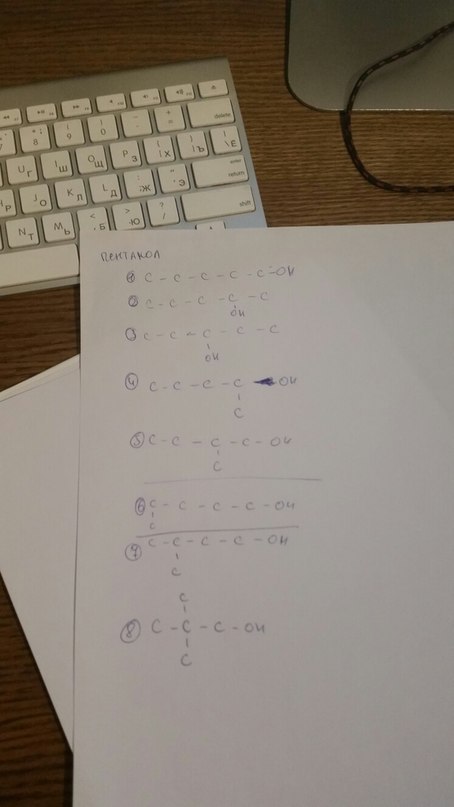 delete
8 9 0 - + =
U Г I Ш O Щ P З { [ Х } ] Ъ \ Ё
enter
return
J О K Л L Д : ; Ж " ' Э
shift
N Т M Ь < , Б > . Ю ? /
ПЕНТАНОЛ
① C - C - C - C - C - OH
② C - C - C - C - C
OH
③ C - C - C - C - C
OH
④ C - C - C - C - OH
C
⑤ C - C - C - C - OH
C
⑥ C - C - C - C - OH
C
⑦ C - C - C - C - OH
C
C
⑧ C - C - C - OH
C